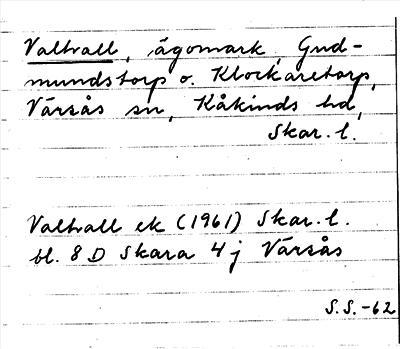 Valtvall, ägomark, Gud-
mundstorp o. Klockaretorp,
Värsås sn, Kåkinds hd,
Skar. l.
Valtvall ek (1961) Skar. l.
bl. 8 D Skara 4 j Värsås
S.S. -62